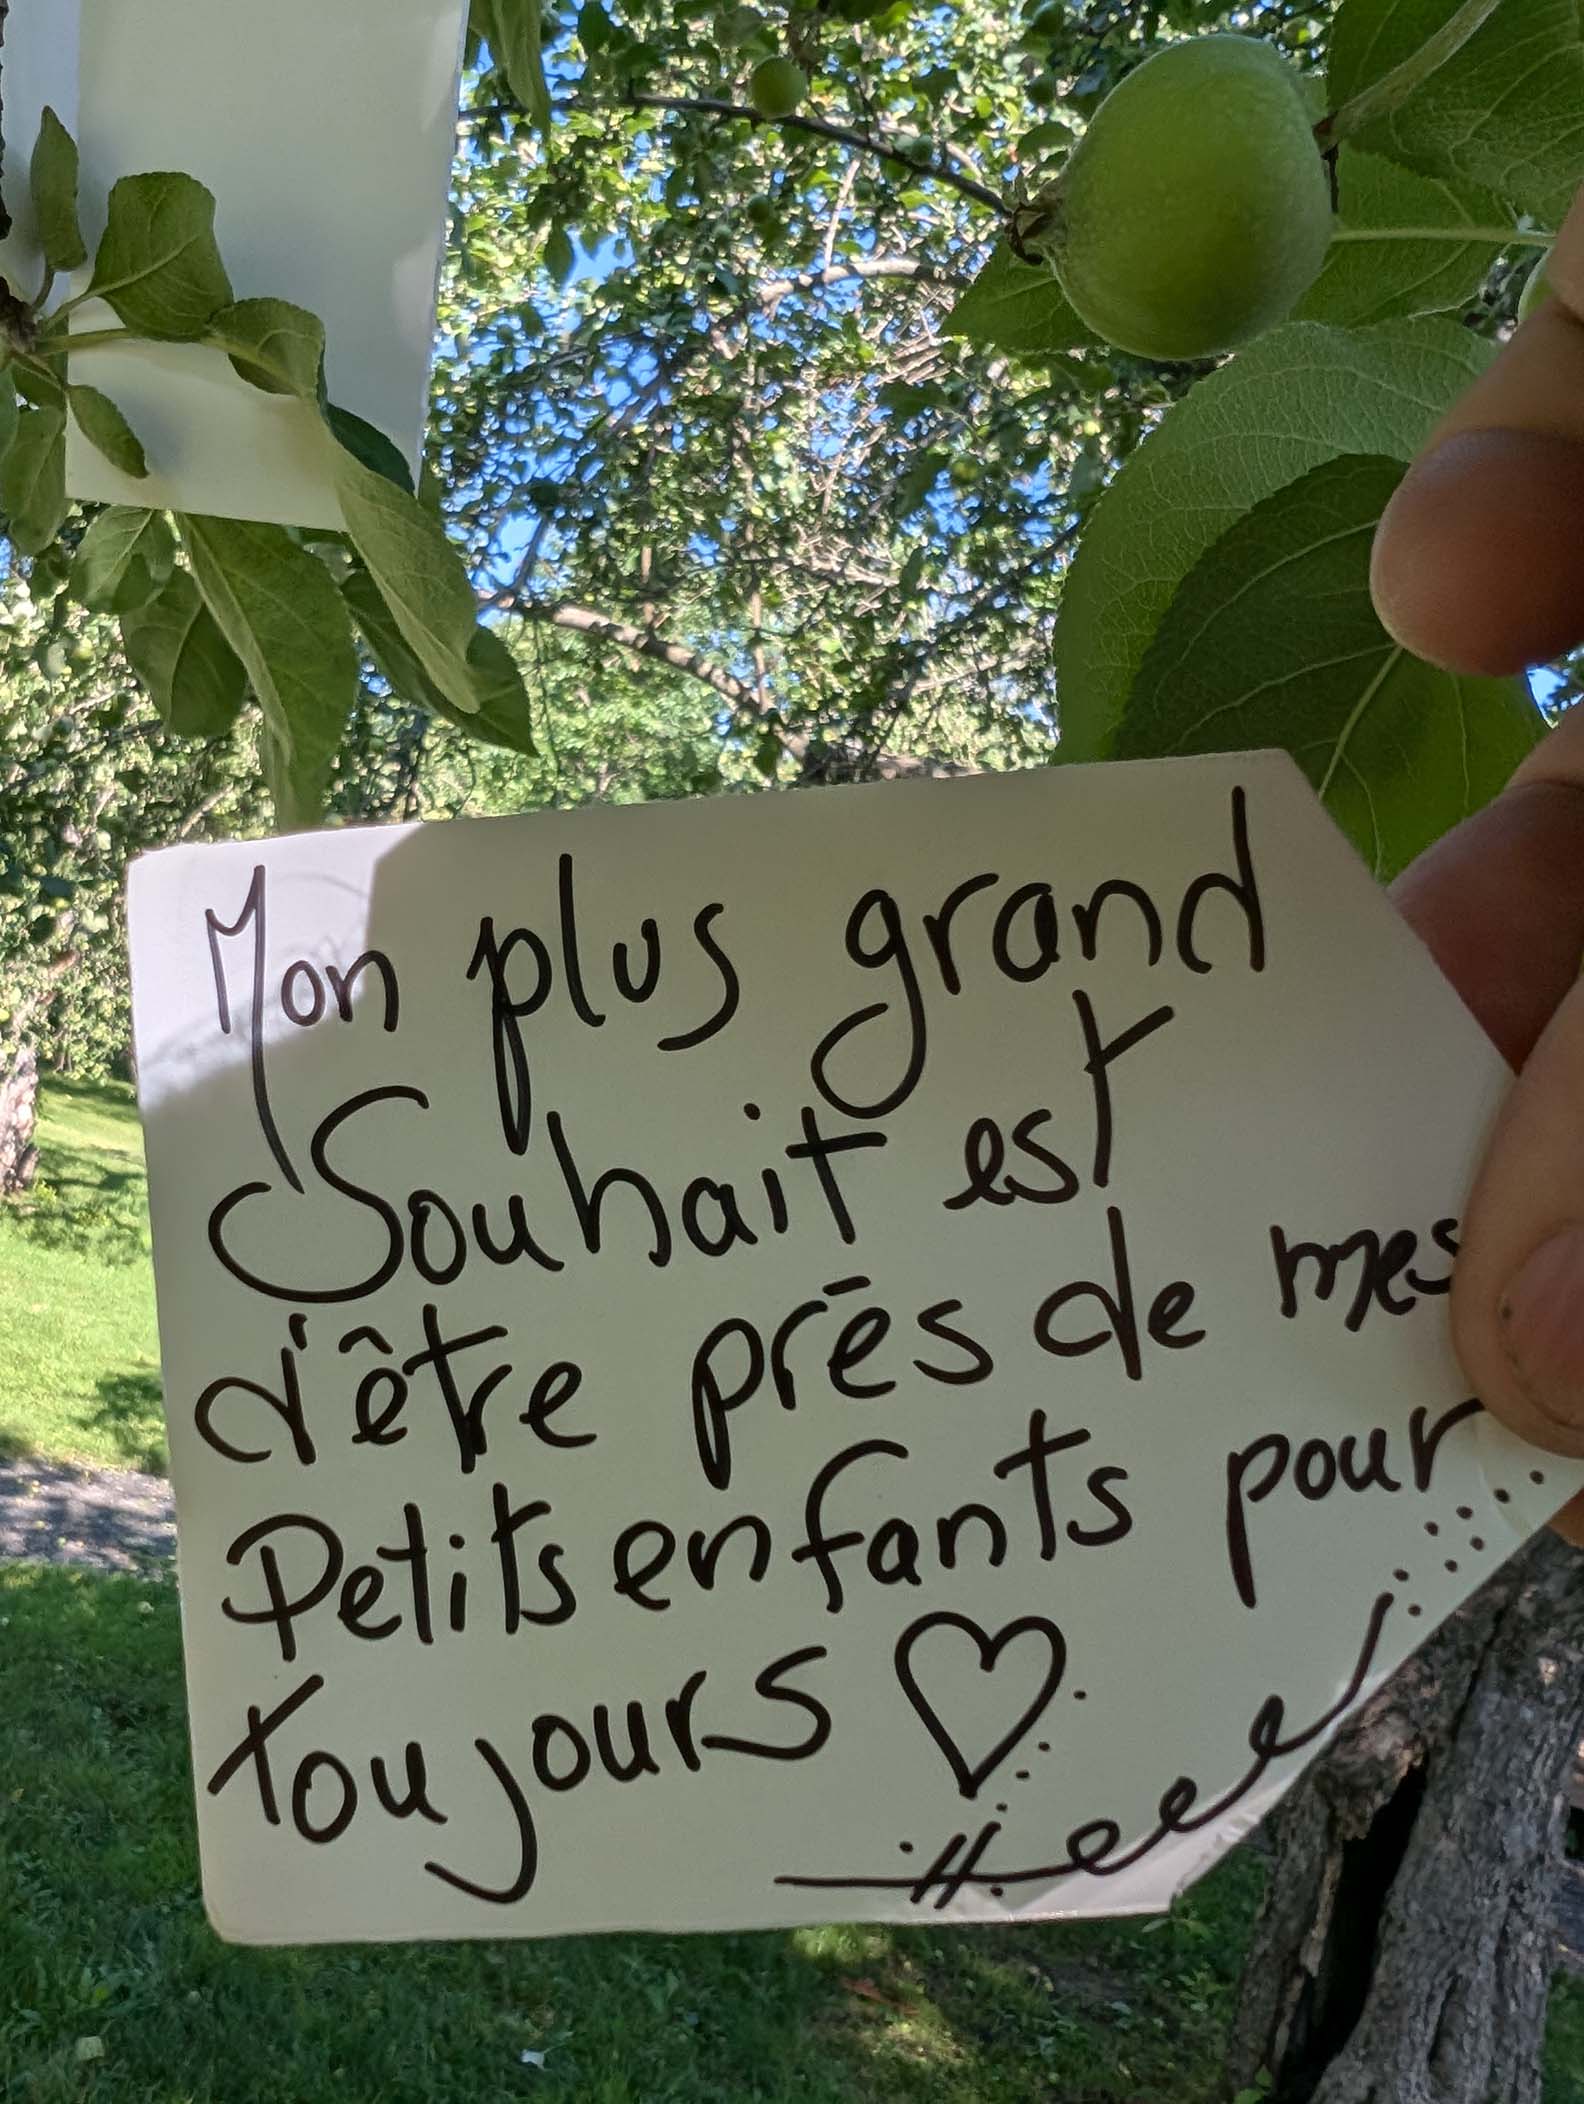 Mon plus grand
Souhait est
d'être près de mes
Petits enfants pour
toujours ♡